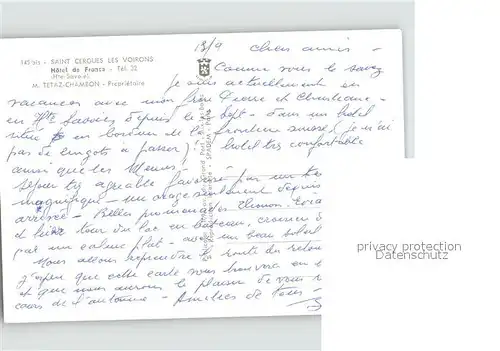 13/9 chers amis -
141 bis - SAINT CERGUES LES VOIRONS
Hôtel de France - Tél. 32
(Hte-Savoie)
M. TETAZ-CHAMBON - Propriétaire
Comme vous le savez
je suis actuellement en
vacances avec mon frère Pierre et
en Hte Savoie depuis le sept - dans un hotel
situé en bordure de la frontière suisse (je n'ai
pas de lingots à passer) hotel très confortable
ainsi que les Menus -
séjour très agréable favorisé par un
magnifique - un orage seulement depuis
arrivée - Belles promenades
et hier tour du lac en bateau,
par un calme plat - avec un beau soleil
Nous allons reprendre la route du retour
j'espère que cette carte vous trouvera en
et que nous aurons le plaisir de vous
cours de l'automne - Amitiés de tous -
privacy protection
Datenschutz